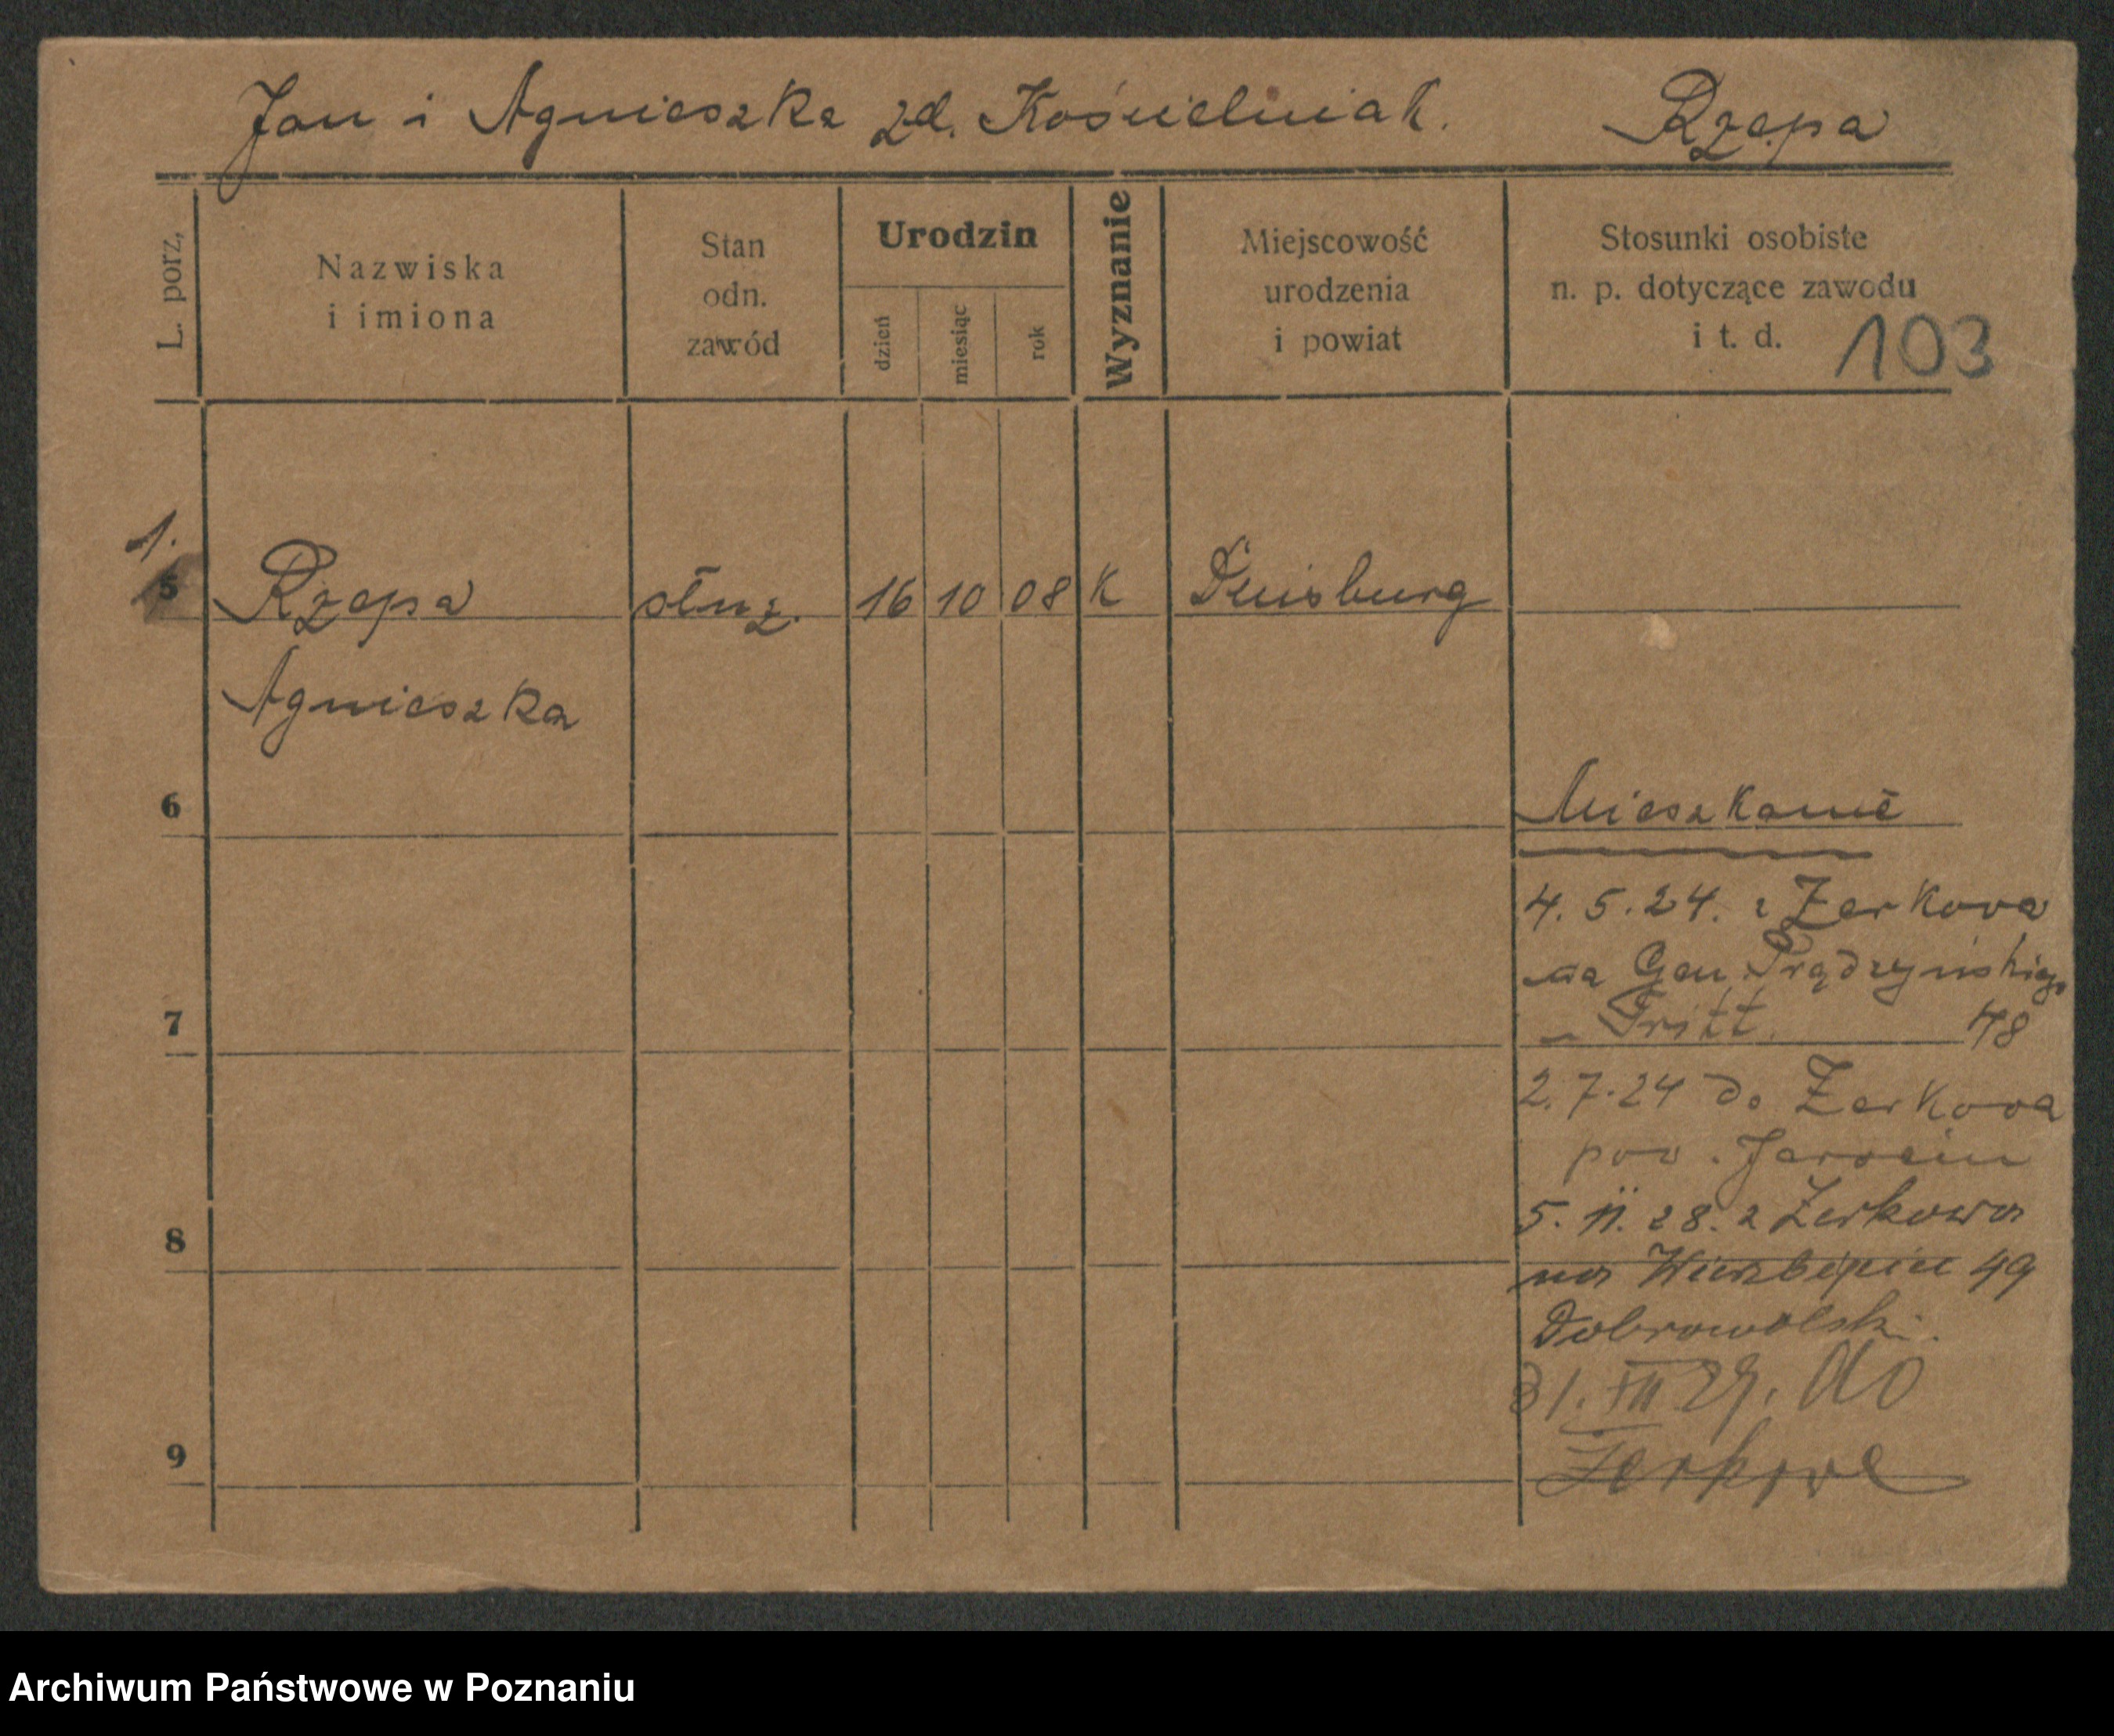 Jan i Agnieszka zd. Kościelniak. Rzepa
L. porz.
Nazwiska
i imiona
Stan
odn.
zawód
Urodzin
dzień
miesiąc
rok
Wyznanie
Miejscowość
urodzenia
i powiat
Stosunki osobiste
n. p. dotyczące zawodu
i t. d.
103
1.
5 Rzepa służ. 16 10 08 K Duisburg
Agnieszka
6 Mieszkanie
4. 5. 24. z Żerkowa
na Gen. Prądzyńskiego
7 Tritt. 48
2. 7. 24 do Żerkowa
pow. Jarocin
5. 11. 28. z Żerkowa
8
na Wierzbięcice 49
Dobrowolski.
31. XII 29. do
9 Żerkowa
Archiwum Państwowe w Poznaniu